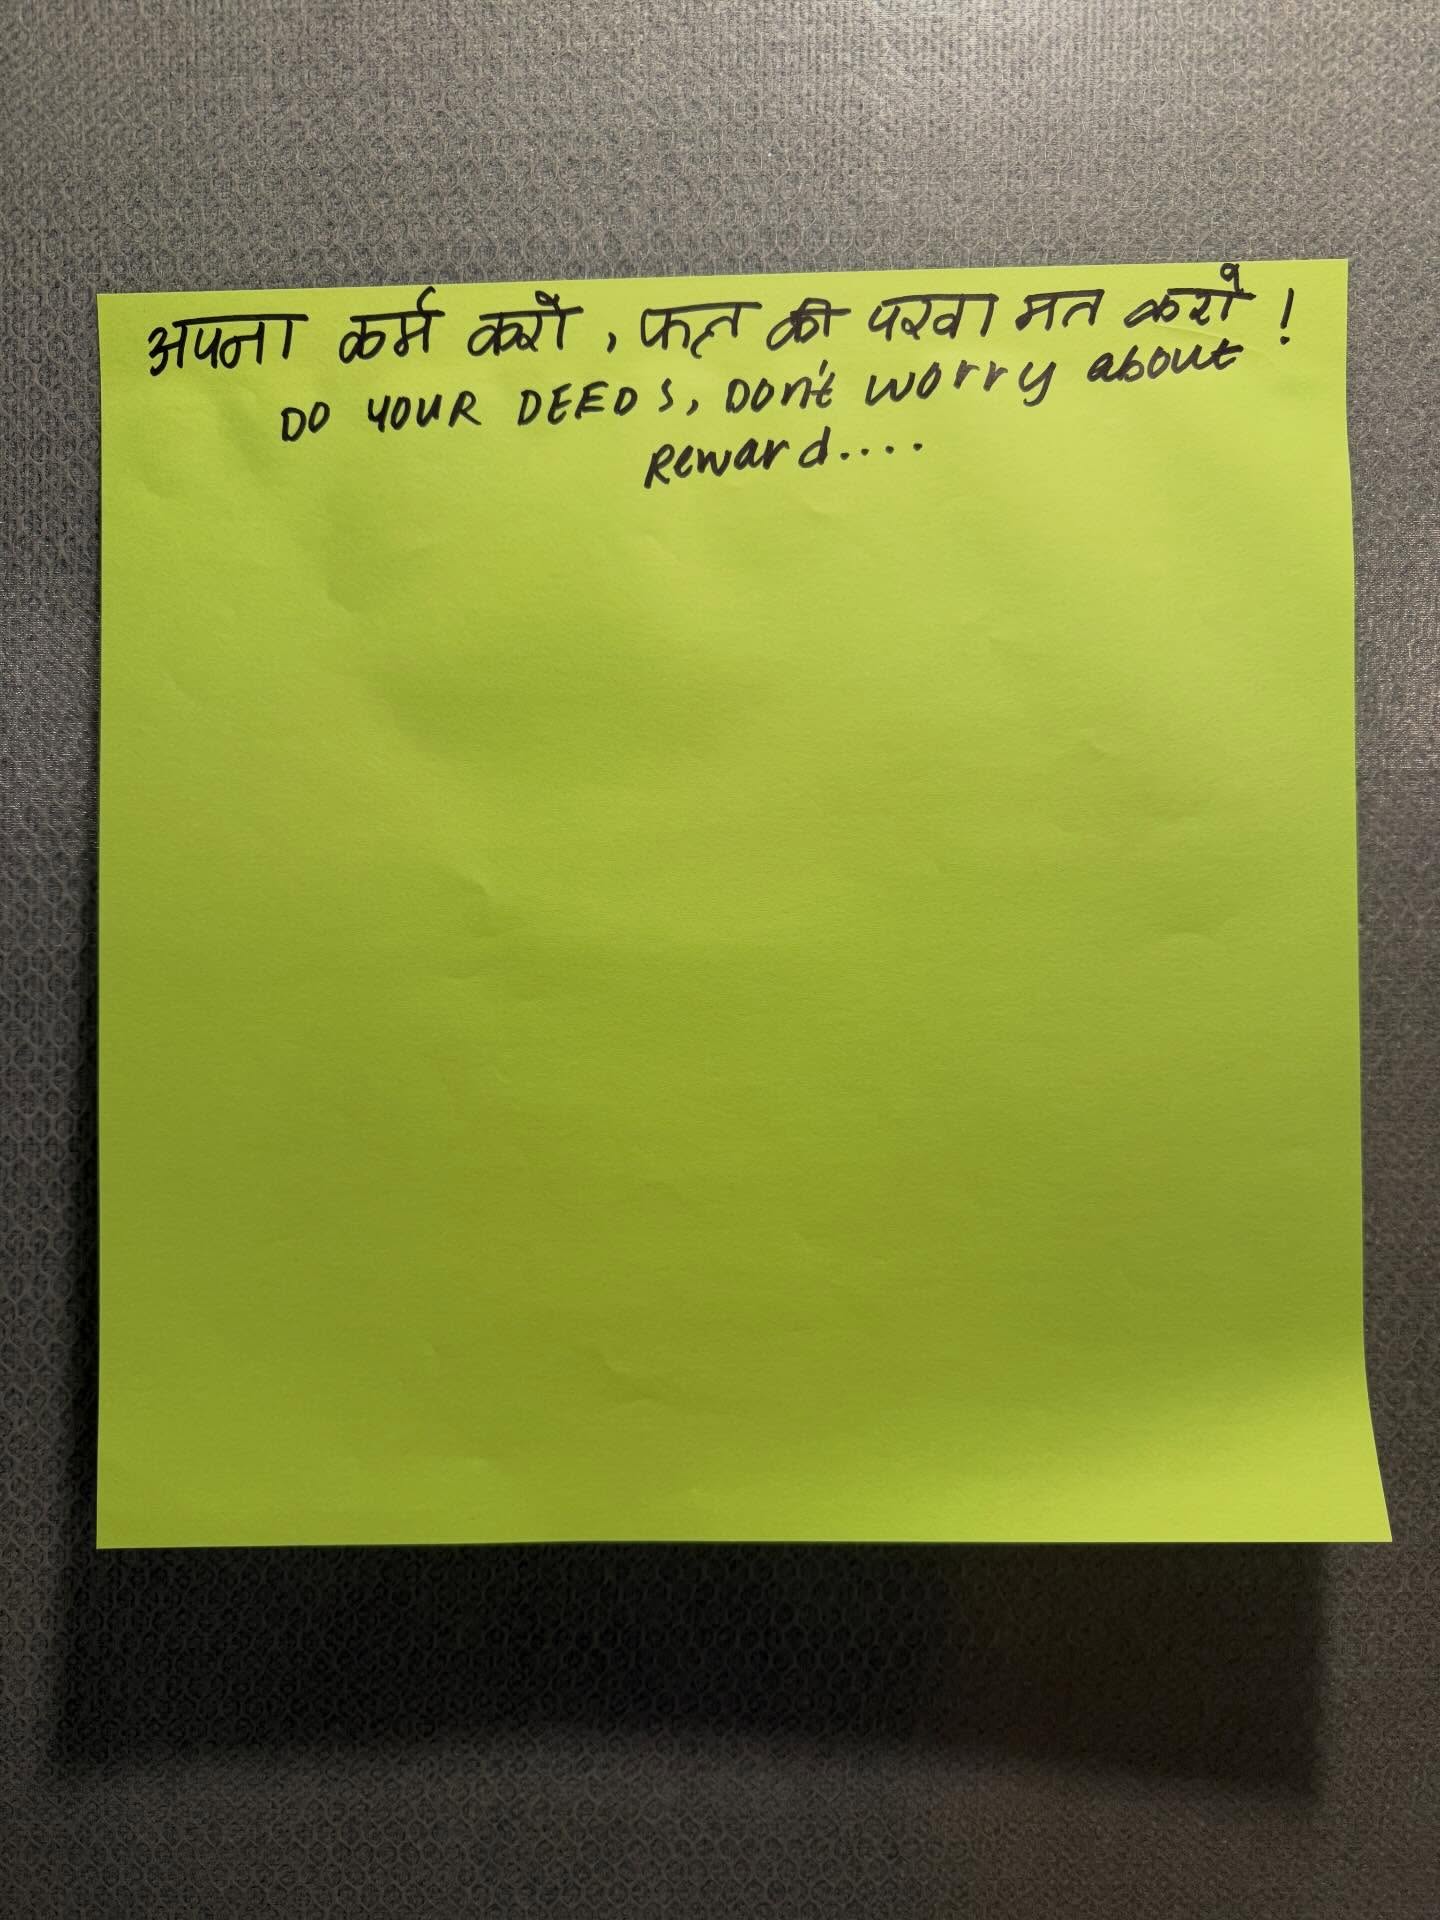 अपना कर्म करो, फल की परवा मत करो!
DO YOUR DEEDS, DON't worry about
Reward....